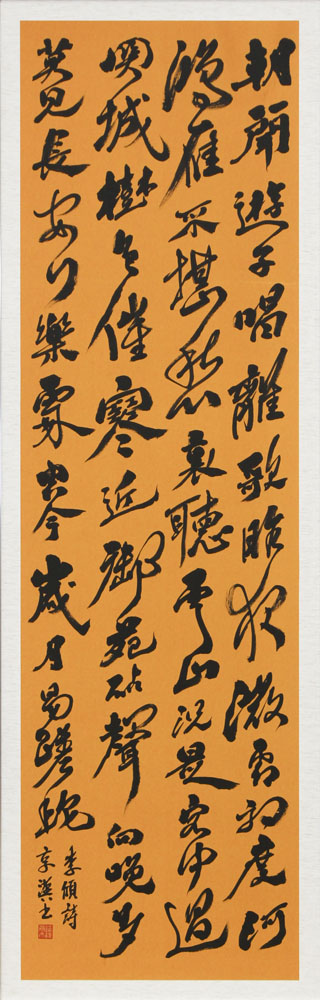 朝聞遊子唱離歌昨夜微霜初度河
鴻雁不堪愁裏聽雲山況是客中過
關城樹色催寒近御苑砧聲向晚多
莫見長安行樂處空令歲月易蹉跎
李頎詩
享書